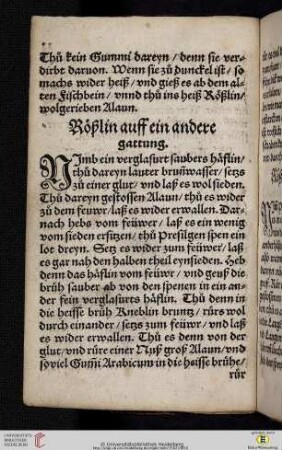 Thů kein Gummi dareyn / denn sie ver-
dirbt daruon. Wenn sie zů dunckel ist / so
machs wider heiß / vnd gieß es ab dem al-
ten Fischbein / vnnd thů ins heiß Rößlin /
wolgerieben Alaun.
Rößlin auff ein andere
gattung.
NImb ein verglasurt saubers häflin /
thů dareyn lauter brunwasser / setzs
zů einer glut / vnd laß es wol sieden.
Thů dareyn gestossen Alaun / thů es wider
zů dem feuwr / laß es wider erwallen. Dar-
nach hebs vom feüwer / laß es ein wenig
vom sieden ersitzen / thů Presilgen spen ein
lot dreyn. Setz es wider zum feüwer / laß
es gar nah den halben theil eynsieden. Heb
denn das häflin vom feüwr / vnd geuß die
brüh sauber ab von den spenen in ein an-
der fein verglasurts häflin. Thů denn in
die heisse brüh Kneblin bruntz / rürs wol
durch einander / setzs zum feüwr / vnd laß
es wider erwallen. Thů es denn von der
glut / vnd rüre einer Nuß groß Alaun / vnd
so viel Gum̃i Arabicum in die heisse brühe /
rür
UNIVERSITÄTS-
BIBLIOTHEK
HEIDELBERG
© Universitätsbibliothek Heidelberg